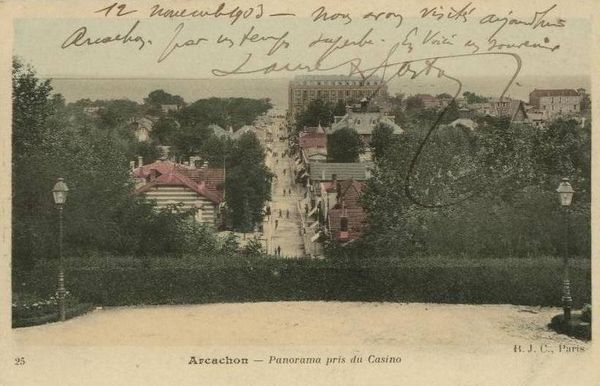 12 Novembre 1903 – Nous avons visité aujourd'hui
Arcachon. par un temps superbe. En voici un souvenir
25 Arcachon — Panorama pris du Casino
B. J. C., Paris